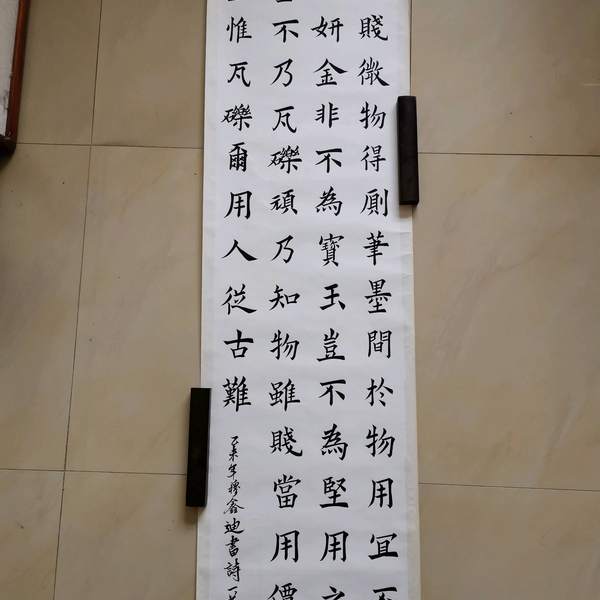 賤微物得廁筆墨間於物用宜不
妍金非不為寶玉豈不為堅用之
不乃瓦礫頑乃知物雖賤當用價
惟瓦礫爾用人從古難
乙未年穆鑫迪書詩一